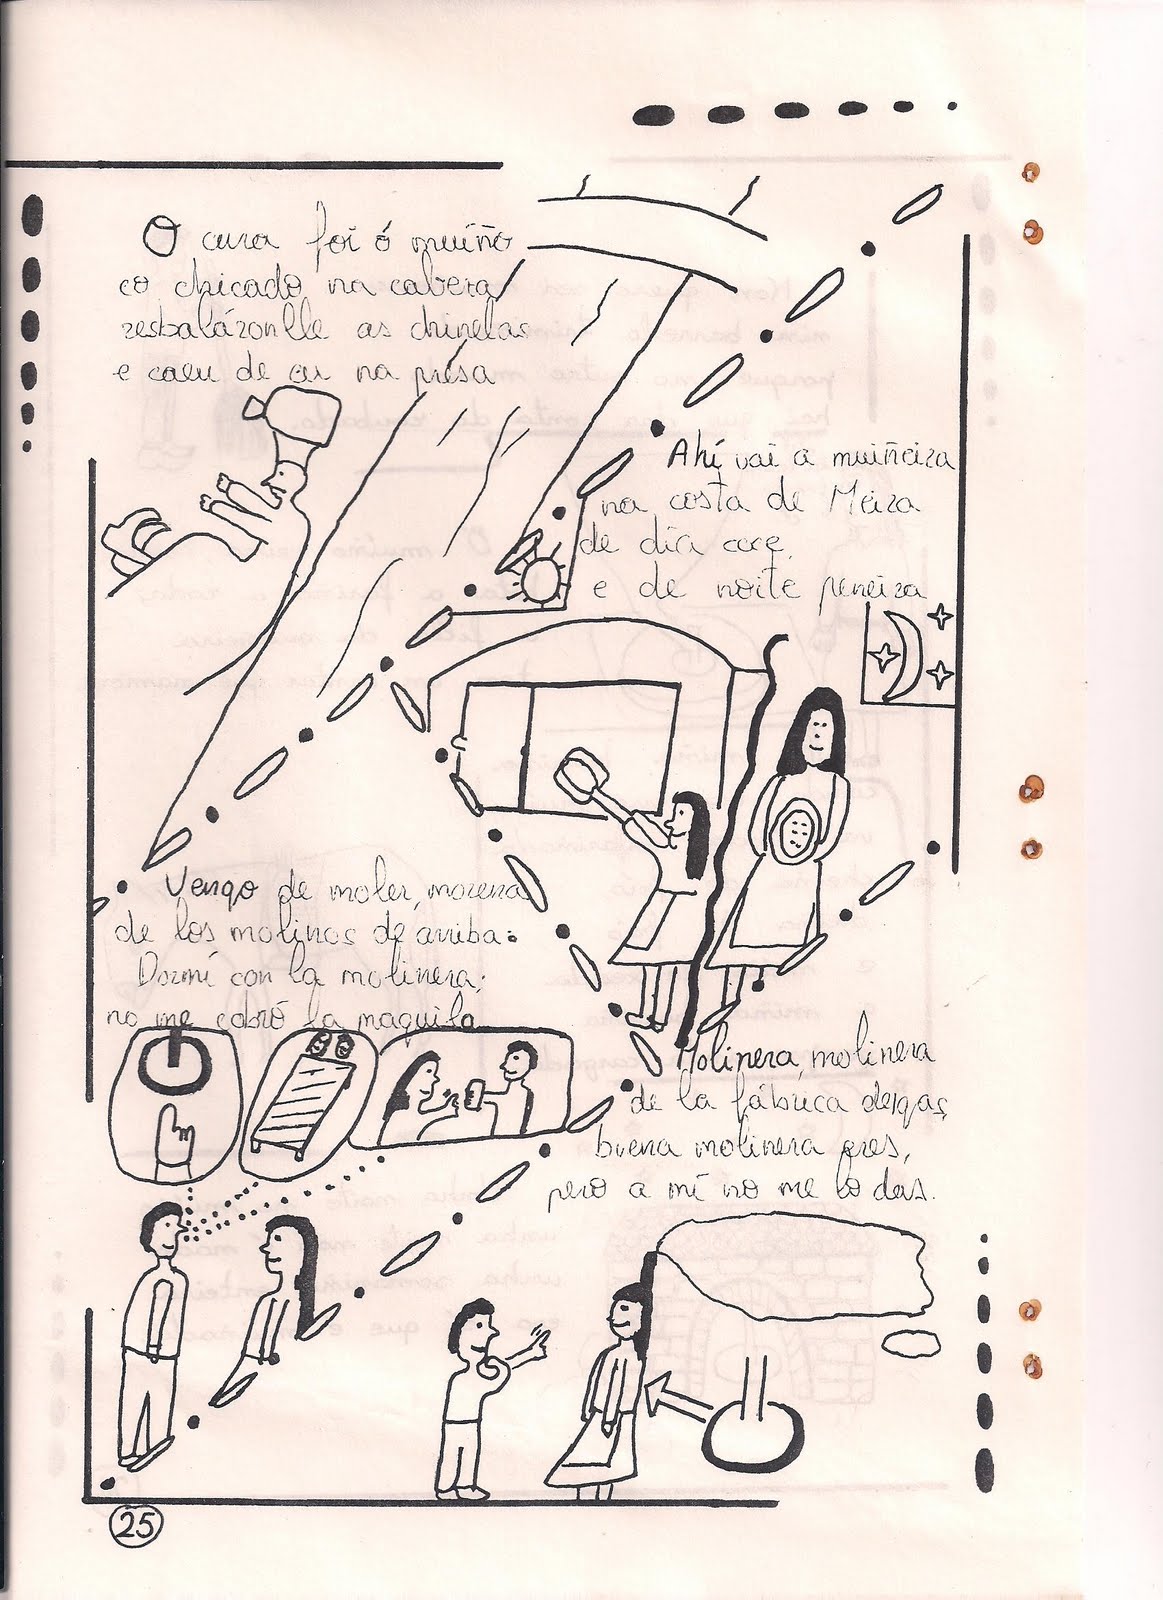 O cura foi ó muíño
co chicado na cabeza
resbaláronlle as chinelas
e caeu de cu na presa
Ahí vai a muiñeira
na costa de Meira
de día coce,
e de noite peneira
Vengo de moler, morena
de los molinos de arriba:
Dormí con la molinera;
no me cobró la maquila.
Molinera, molinera
de la fábrica
buena molinera eres,
pero a mí no me lo das.
25